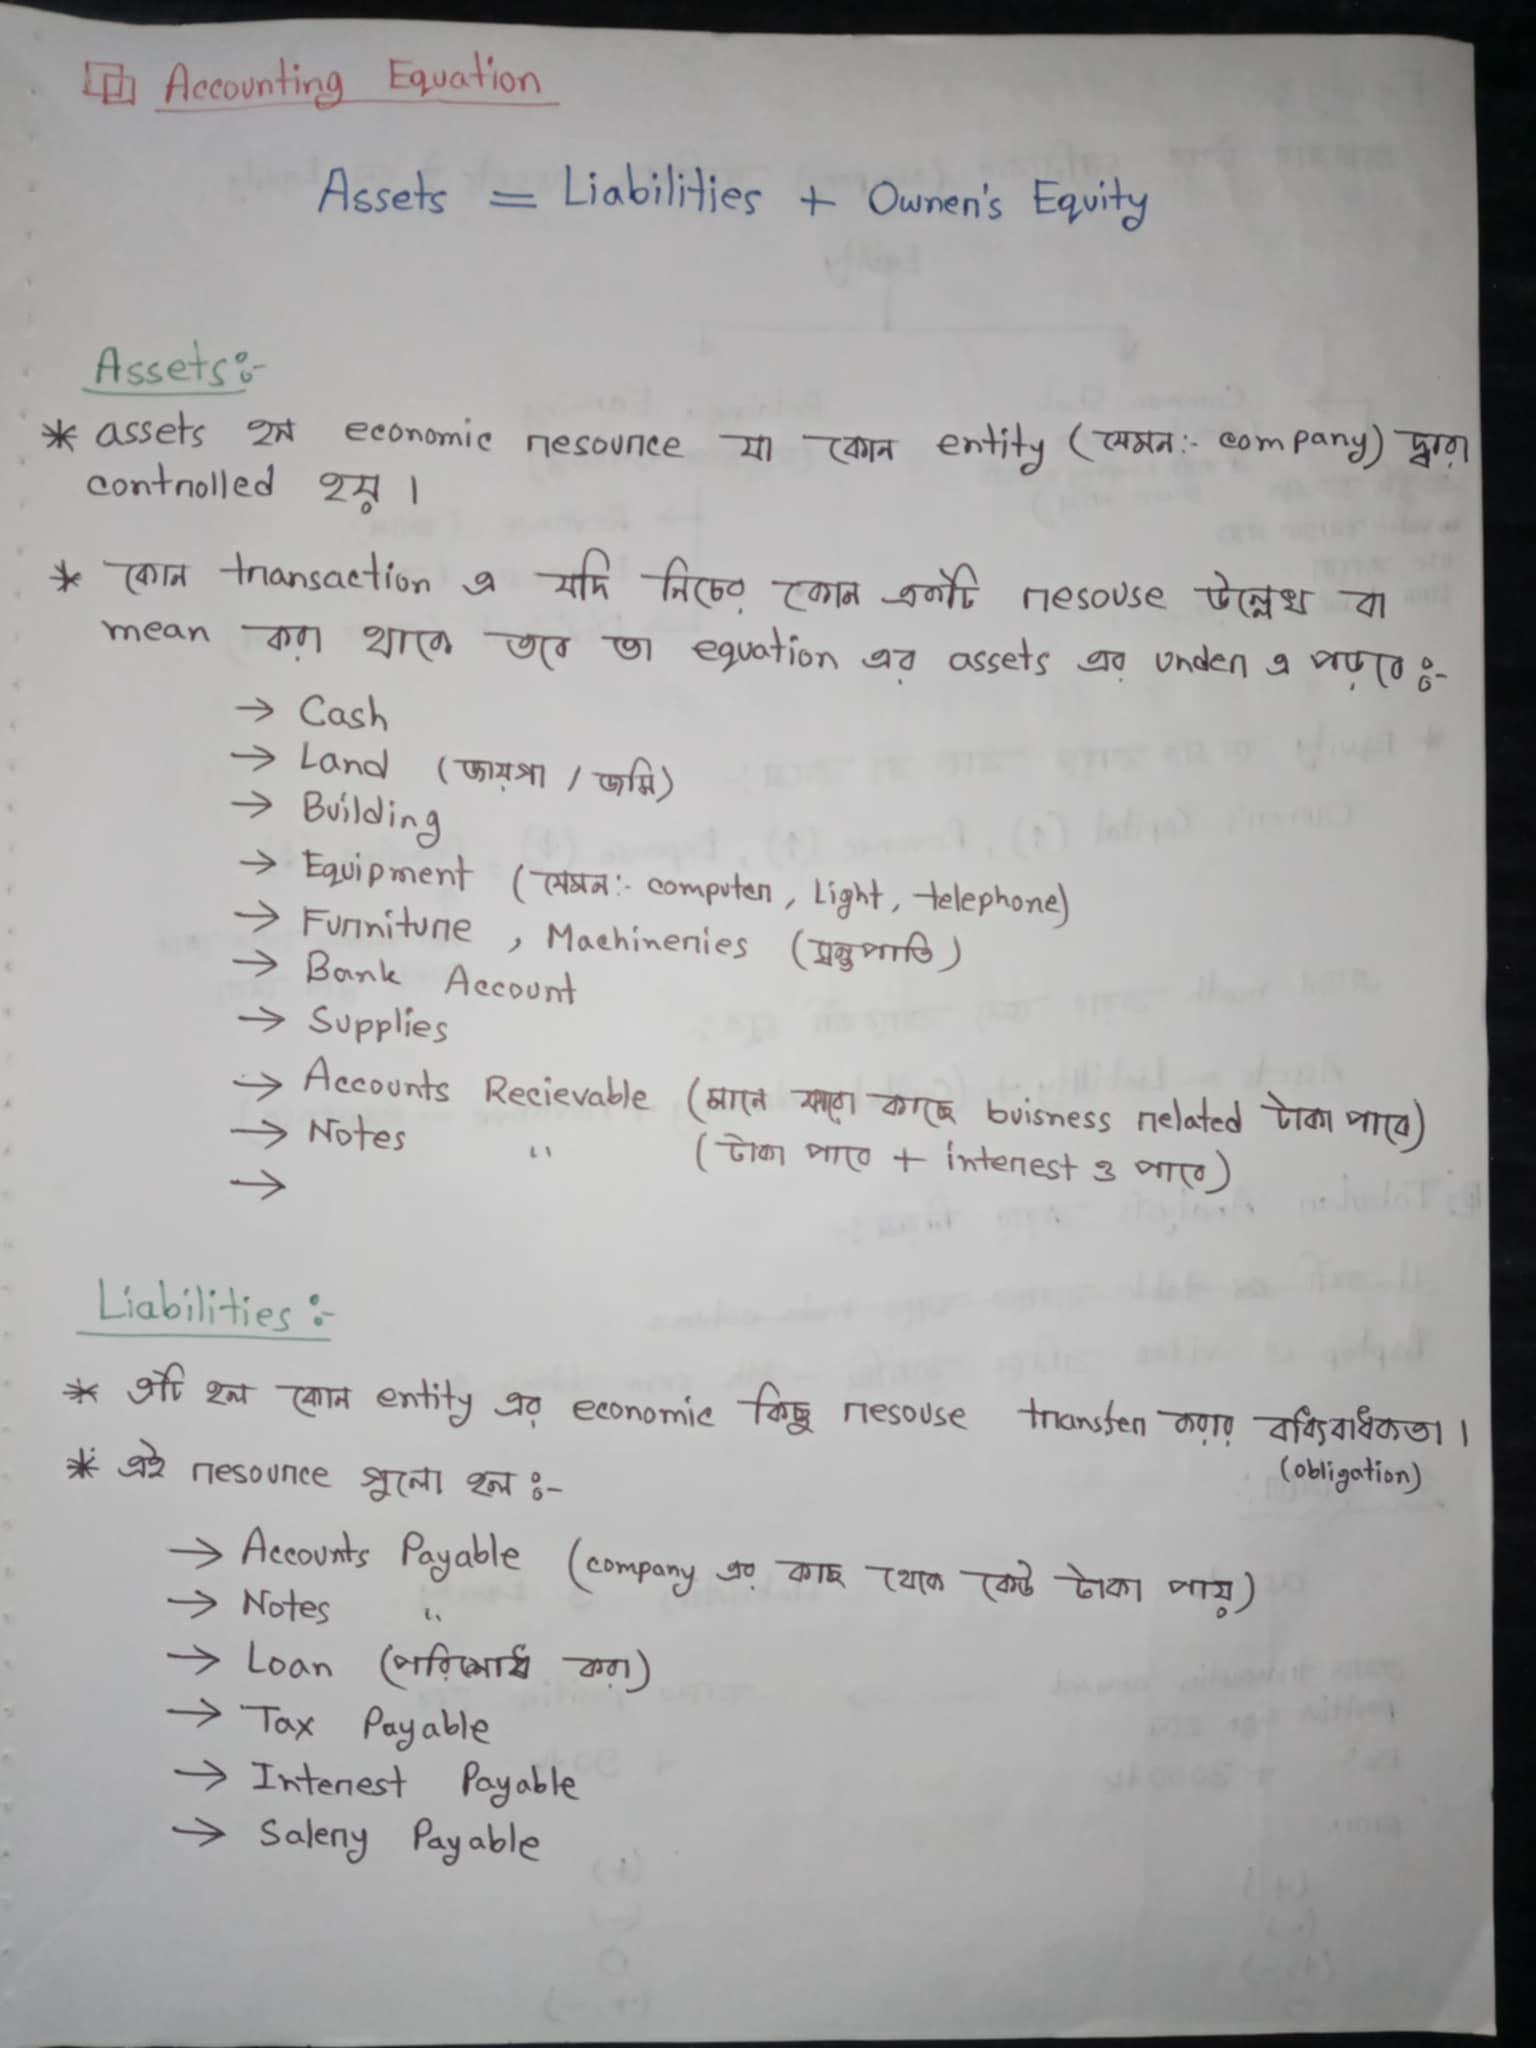 Accounting Equation
Assets = Liabilities + Owner's Equity
Assets:-
* assets হল economic resource যা কোন entity (যেমন:- company) দ্বারা
controlled হয়।
* কোন transaction এ যদি নিচের কোন একটি resouse উল্লেখ বা
mean করা থাকে তবে তা equation এর assets এর under এ পড়বে:-
→ Cash
→ Land (জায়গা / জমি)
→ Building
→ Equipment (যেমন:- computer, Light, telephone)
→ Furniture, Machineries (যন্ত্রপাতি)
→ Bank Account
→ Supplies
→ Accounts Recievable (মানে কারো কাছে buisness related টাকা পাবে)
→ Notes " (টাকা পাবে + interest ও পাবে)
→
Liabilities:-
* এটি হল কোন entity এর economic কিছু resouse transfer করার
(obligation)
* এই resource গুলো হল:-
→ Accounts Payable (company এর কাছ থেকে কেউ টাকা পায়)
→ Notes "
→ Loan (পরিশোধ করা)
→ Tax Payable
→ Interest Payable
→ Salery Payable